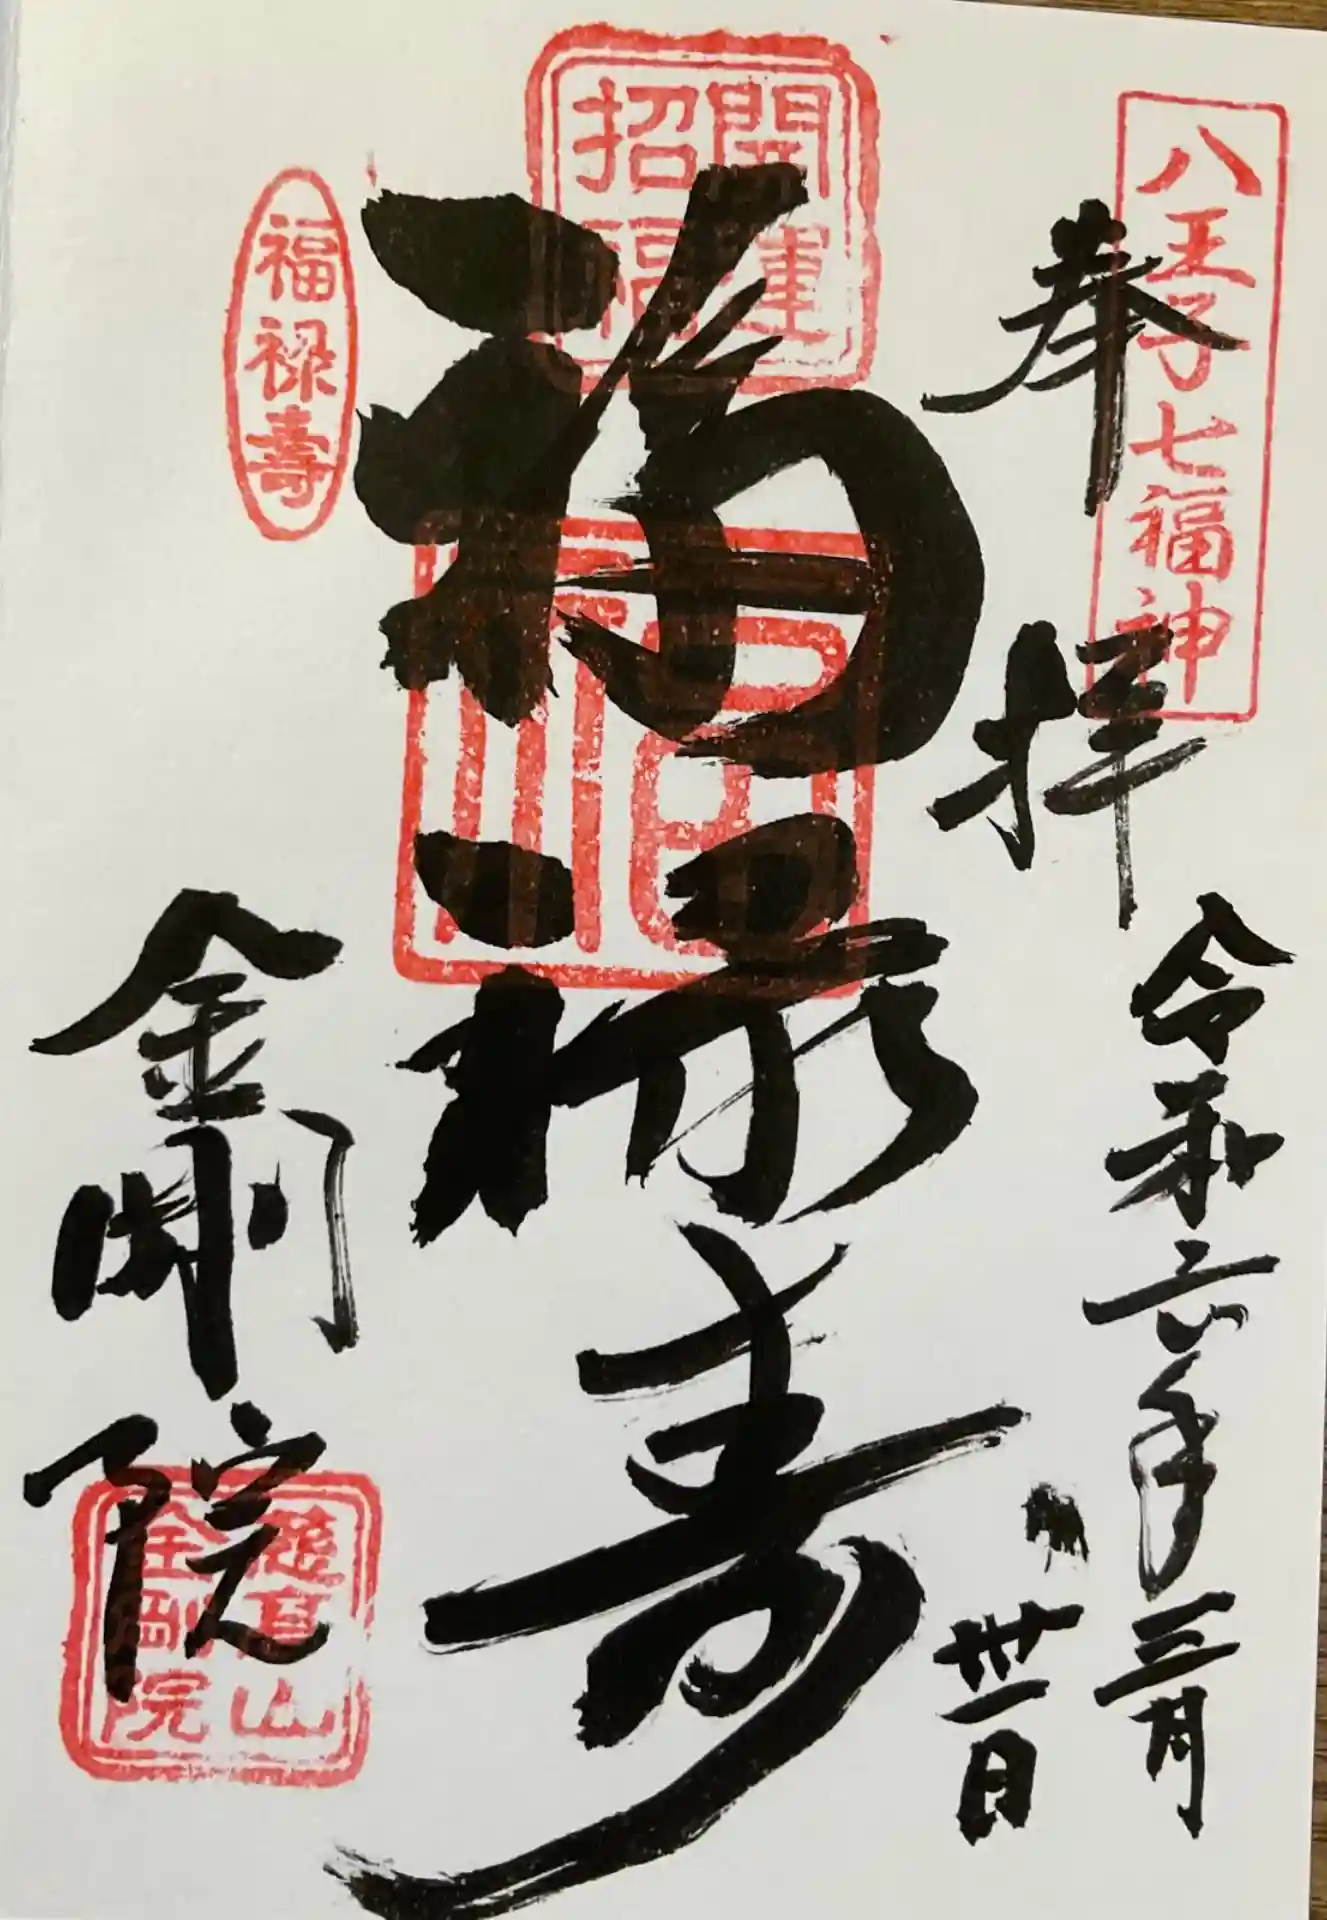 八王子七福神
奉拝
令和六年三月
卅一日
開運
招福
福禄寿
福禄壽
金剛院
慈高山
金剛院